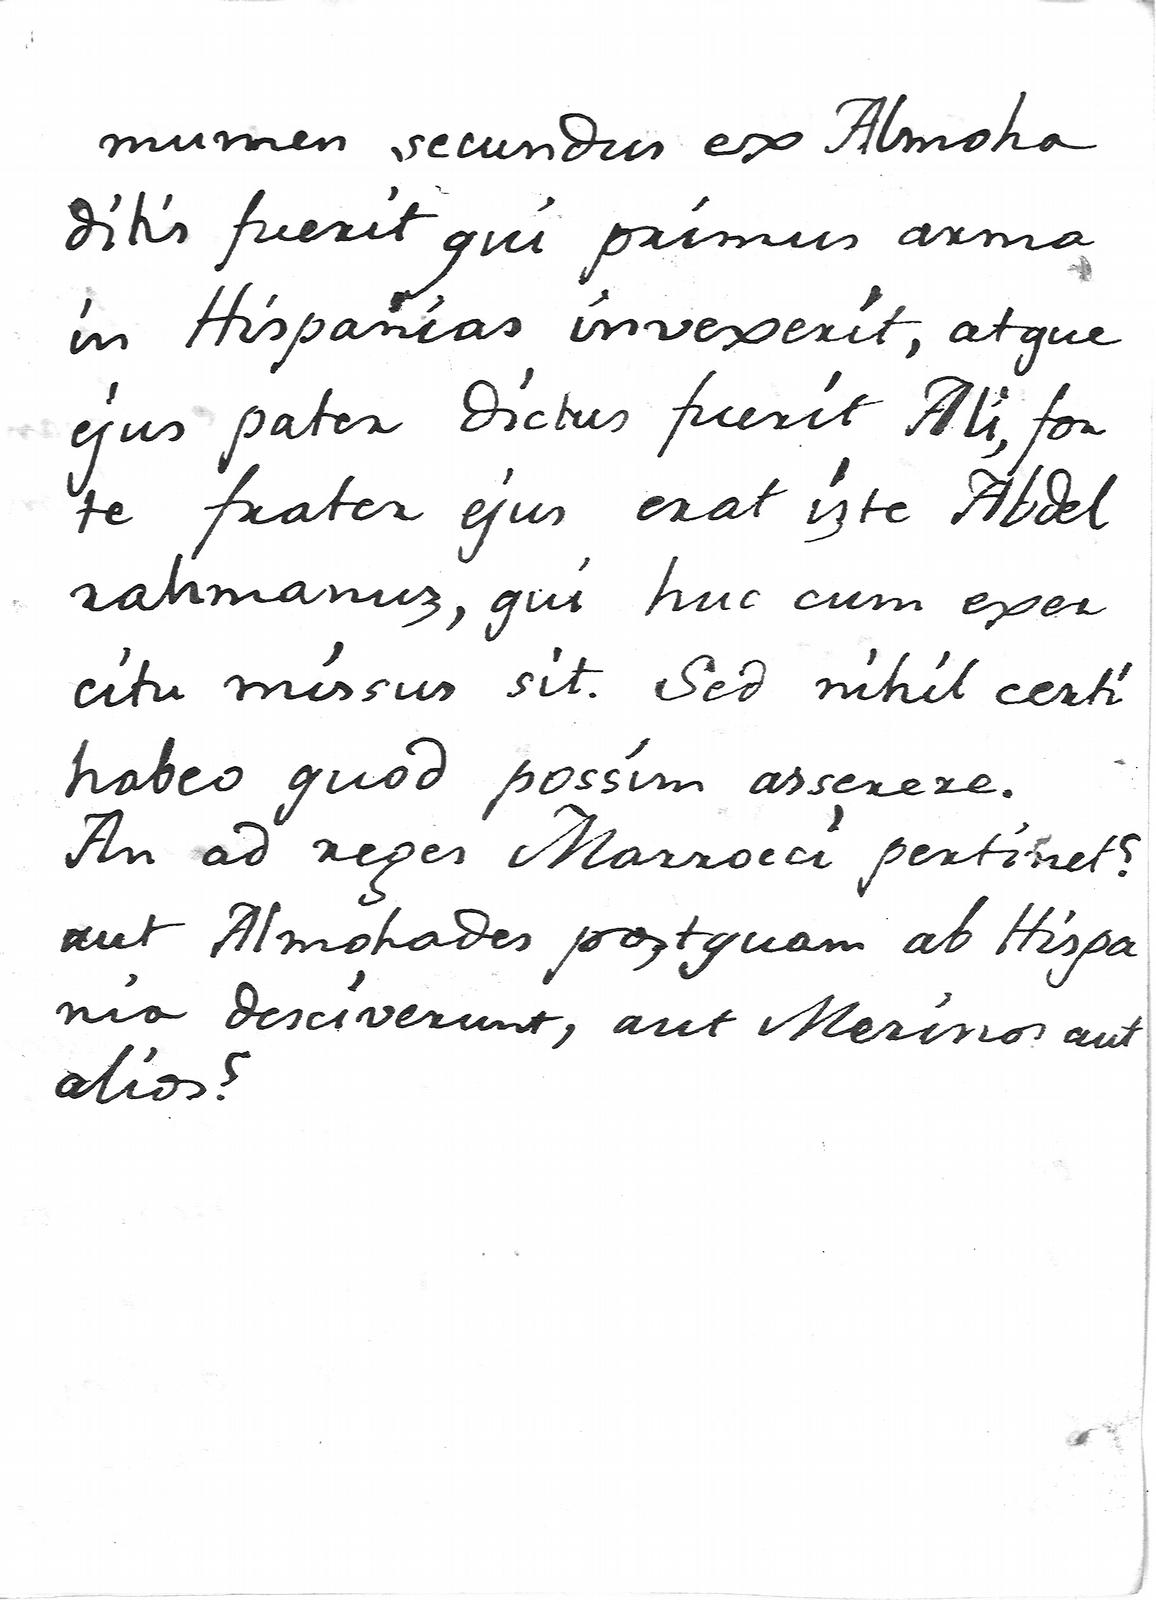 mumen secundus ex Almoha
ditis fuerit qui primus arma
in Hispanias invexerit, atque
ejus pater dictus fuerit Ali, for
te frater ejus erat iste Abdel
rahmanus, qui huc cum exer
citu missus sit. Sed nihil certi
habeo quod possim asserere.
An ad reges Marrocci pertinet?
aut Almohades postquam ab Hispa
nia desciverunt, aut Merinos aut
alios?